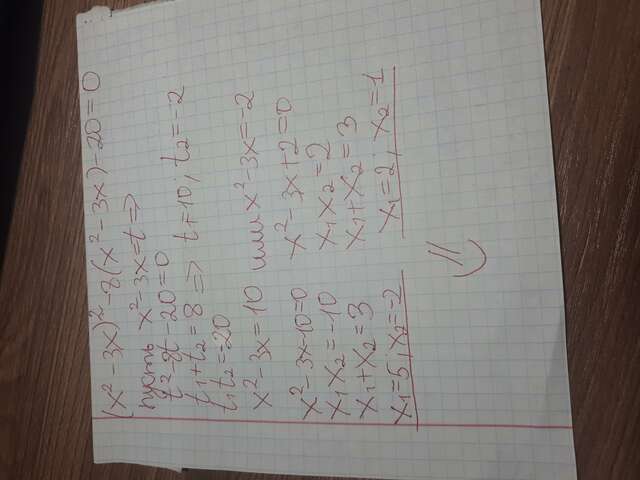 (x² - 3x)² - 8(x² - 3x) - 20 = 0
пусть x² - 3x = t =>
t² - 8t - 20 = 0
t₁ + t₂ = 8 => t₁ = 10; t₂ = -2
t₁t₂ = -20
x² - 3x = 10 или x² - 3x = -2
x² - 3x - 10 = 0
x₁x₂ = -10
x₁ + x₂ = 3
x₁ = 5; x₂ = -2
x² - 3x + 2 = 0
x₁x₂ = 2
x₁ + x₂ = 3
x₁ = 2; x₂ = 1